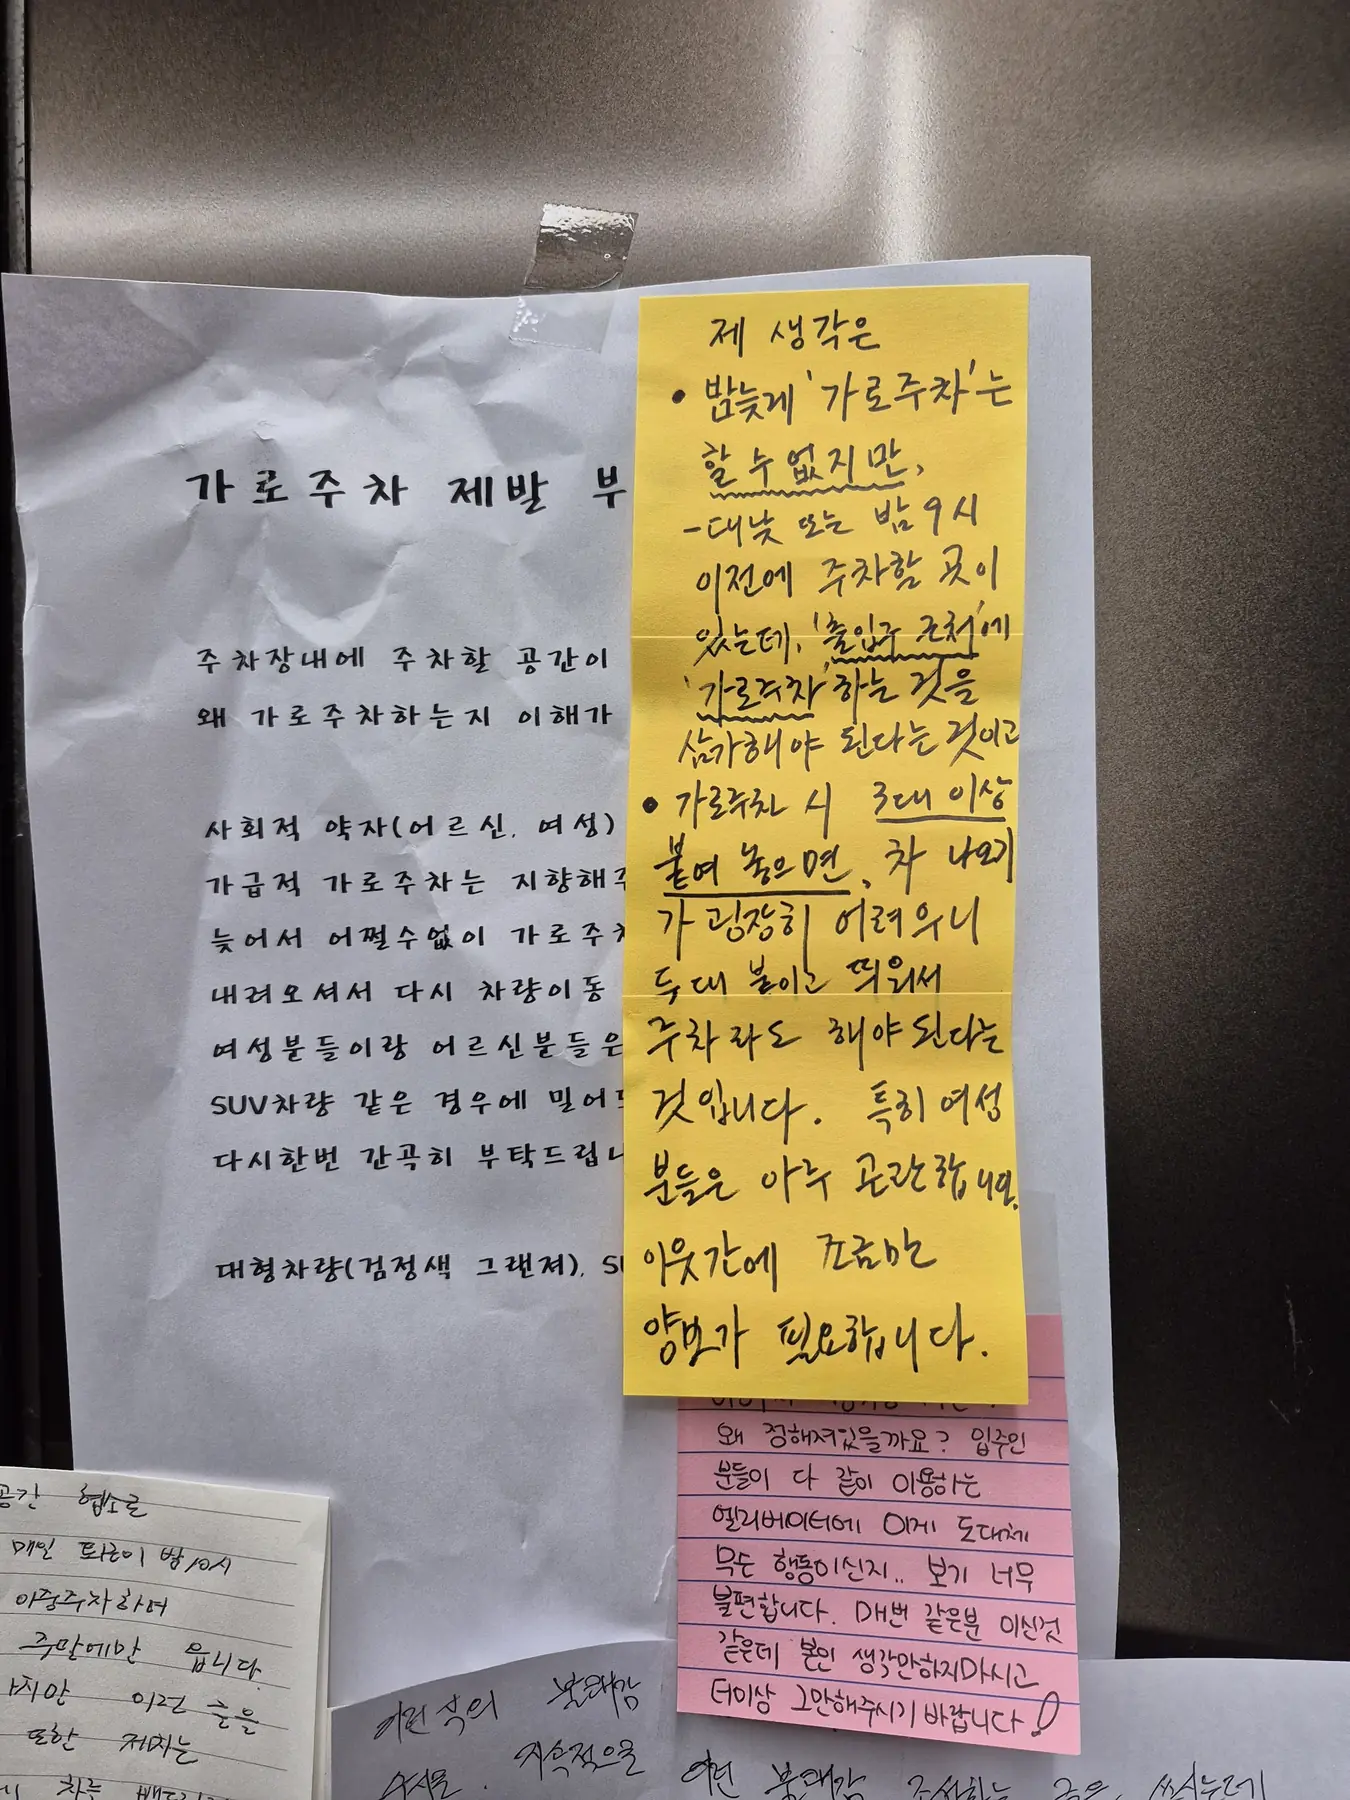 가로주차 제발 부
주차장내에 주차할 공간이
왜 가로주차하는지 이해가
사회적 약자(어르신, 여성)
가급적 가로주차는 지향해주
늦어서 어쩔수없이 가로주차
내려오셔서 다시 차량이동
여성분들이랑 어르신분들은
SUV차량 같은 경우에 밀어도
다시한번 간곡히 부탁드립니
대형차량(검정색 그랜져), SU
제 생각은
• 밤늦게 '가로주차'는
할 수 없지만,
-대낮 또는 밤 9시
이전에 주차할 곳이
있는데, '출입구 근처'에
'가로주차'하는 것을
삼가해야 된다는 것이고
• 가로주차 시 3대 이상
붙여 놓으면, 차 나오기
가 굉장히 어려우니
두대 붙이고 띄워서
주차라도 해야된다는
것입니다. 특히 여성
분들은 아주 곤란합니다.
이웃간에 조금만
양보가 필요합니다.
왜 정해져있을까요? 입주민
분들이 다 같이 이용하는
엘리베이터에 이게 도대체
무슨 행동이신지.. 보기 너무
불편합니다. 매번 같은분 이신것
같은데 본인 생각만하지마시고
더이상 그만해주시기 바랍니다!
공간 협소로
매일 퇴근이 밤10시
이중주차하여
주말에만 옵니다.
하지만 이런 글을
또한 저희는
차를
이런 식의 불쾌감
지속적으로
이런 불쾌감 조성하는 글은 쓰시는데